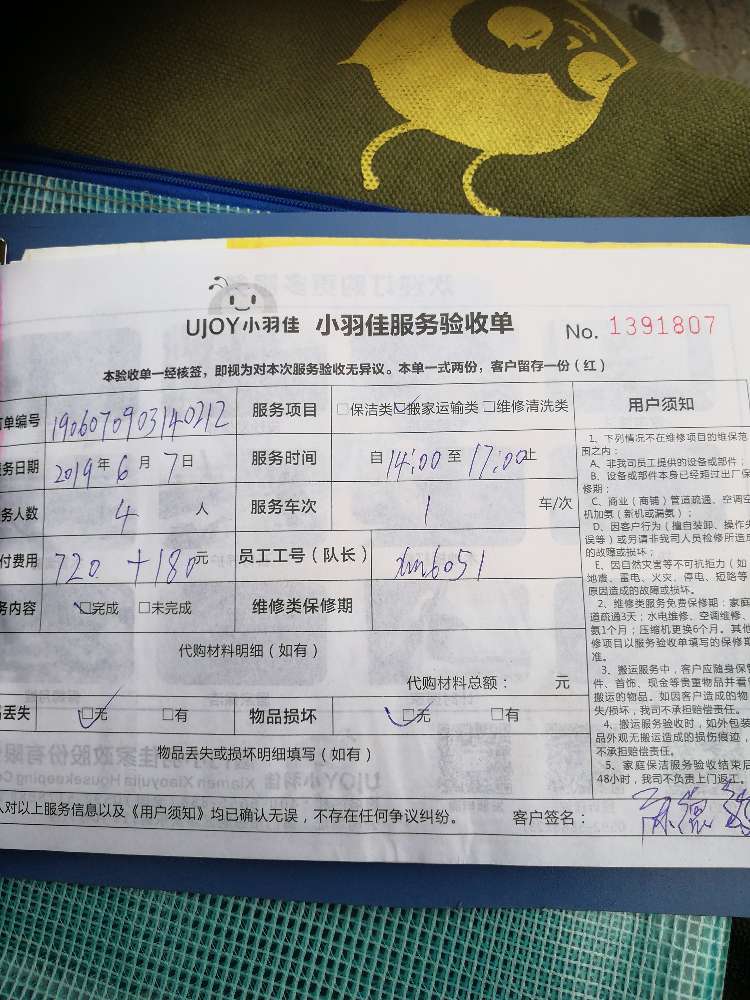 UJOY小羽佳 小羽佳服务验收单 No. 1391807
本验收单一经核签，即视为对本次服务验收无异议。本单一式两份，客户留存一份（红）
单编号 1906070903140212 服务项目 □保洁类 ☑搬家运输类 □维修清洗类 用户须知
务日期 2019年6月7日 服务时间 自14:00至17:00止
务人数 4 人 服务车次 1 车/次
付费用 720 +180元 员工工号（队长） xm6051
务内容 ☑完成 □未完成 维修类保修期
代购材料明细（如有）
代购材料总额： 元
丢失 ☑无 □有 物品损坏 ☑无 □有
物品丢失或损坏明细填写（如有）
人对以上服务信息以及《用户须知》均已确认无误，不存在任何争议纠纷。 客户签名：
1、下列情况不在维修项目的维保范
围之内：
A、非我司员工提供的设备或部件；
B、设备或部件本身已经超过出厂保
修期；
C、商业（商铺）管道疏通、空调空
机加氨（新机或漏氨）；
D、因客户行为（擅自装卸、操作失
误等）或另请非我司人员检修所造成
的故障或损坏；
E、因自然灾害等不可抗拒力（如
地震、雷电、火灾、停电、短路等
原因造成的故障或损坏。
2、维修类服务免费保修期：家庭
道疏通3天；水电维修、空调维修、
氨1个月；压缩机更换6个月。其他
修项目以服务验收单填写的保修期
准。
3、搬运服务中，客户应随身保管
件、首饰、现金等贵重物品并看管
搬运的物品。如因客户造成的物
失/损坏，我司不承担赔偿责任。
4、搬运服务验收时，如外包装
品外观无搬运造成的损伤痕迹，
不承担赔偿责任。
5、家庭保洁服务验收结束后
48小时，我司不负责上门返工。